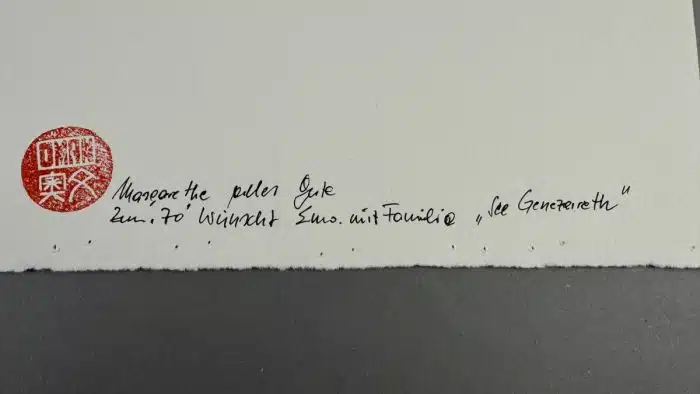 奥
Margarethe alles Gute
Zum "70" Wünscht Emo. mit Familie „See Genezareth"